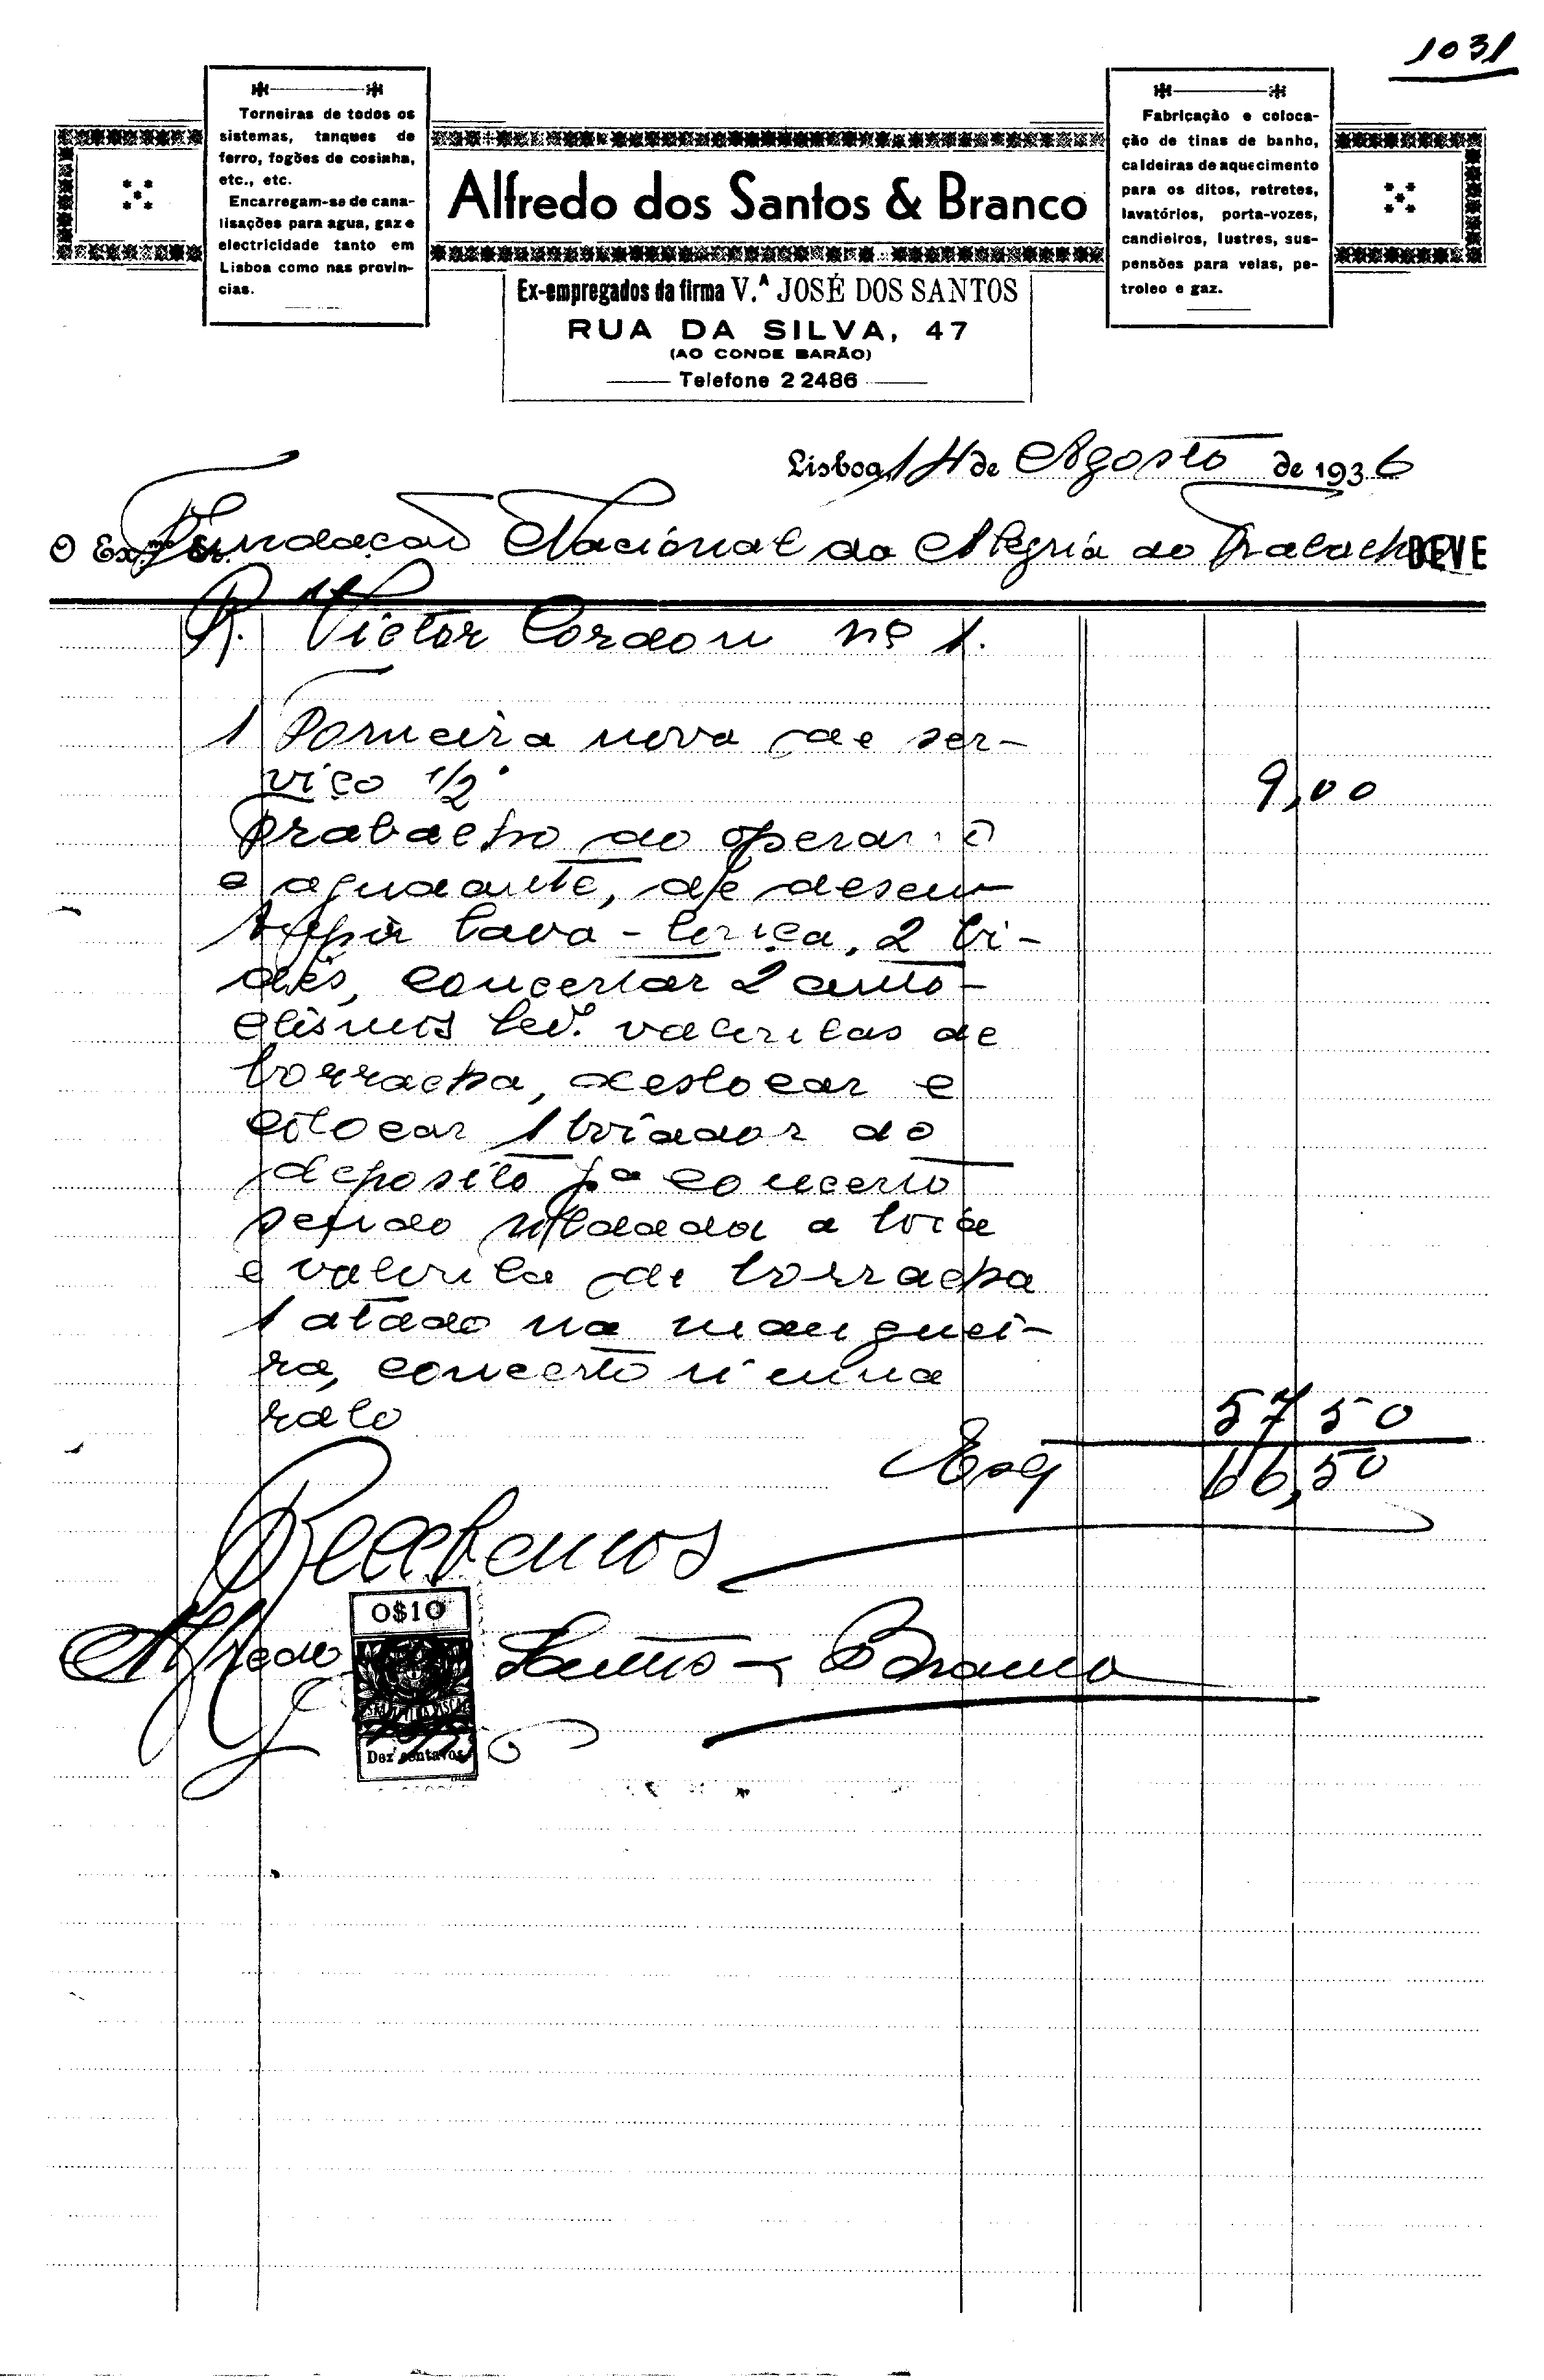 1031
Torneiras de todos os
sistemas, tanques de
ferro, fogões de cosinha,
etc., etc.
Encarregam-se de cana-
lisações para agua, gaz e
electricidade tanto em
Lisboa como nas provin-
cias.
Alfredo dos Santos & Branco
Fabricação e coloca-
ção de tinas de banho,
caldeiras de aquecimento
para os ditos, retretes,
lavatórios, porta-vozes,
candieiros, lustres, sus-
pensões para velas, pe-
troleo e gaz.
Ex-empregados da firma V.ª JOSÉ DOS SANTOS
RUA DA SILVA, 47
(AO CONDE BARÃO)
Telefone 2 2486
Lisboa, 14 de Agosto de 1936
O Ex.mo Sr. Fundação Nacional da Alegria do Trabalho DEVE
R. Victor Cordon nº 1.
1 Torneira nova de ser-
viço 1/2" 9,00
Trabalho do operario
e ajudante, de desen
tupir lava-loiça, 2 bi-
dés, concertar 2 auto-
clismos valvulas de
borracha, deslocar e
colocar 1 boiador do
deposito pª concerto
sendo soldada a boia
e valvula de borracha
1 atado na manguei-
ra, concerto n'uma
ralo 57 50
Esc 66,50
Recebemos
Alfredo Santos & Branco
0$10
Dez centavos